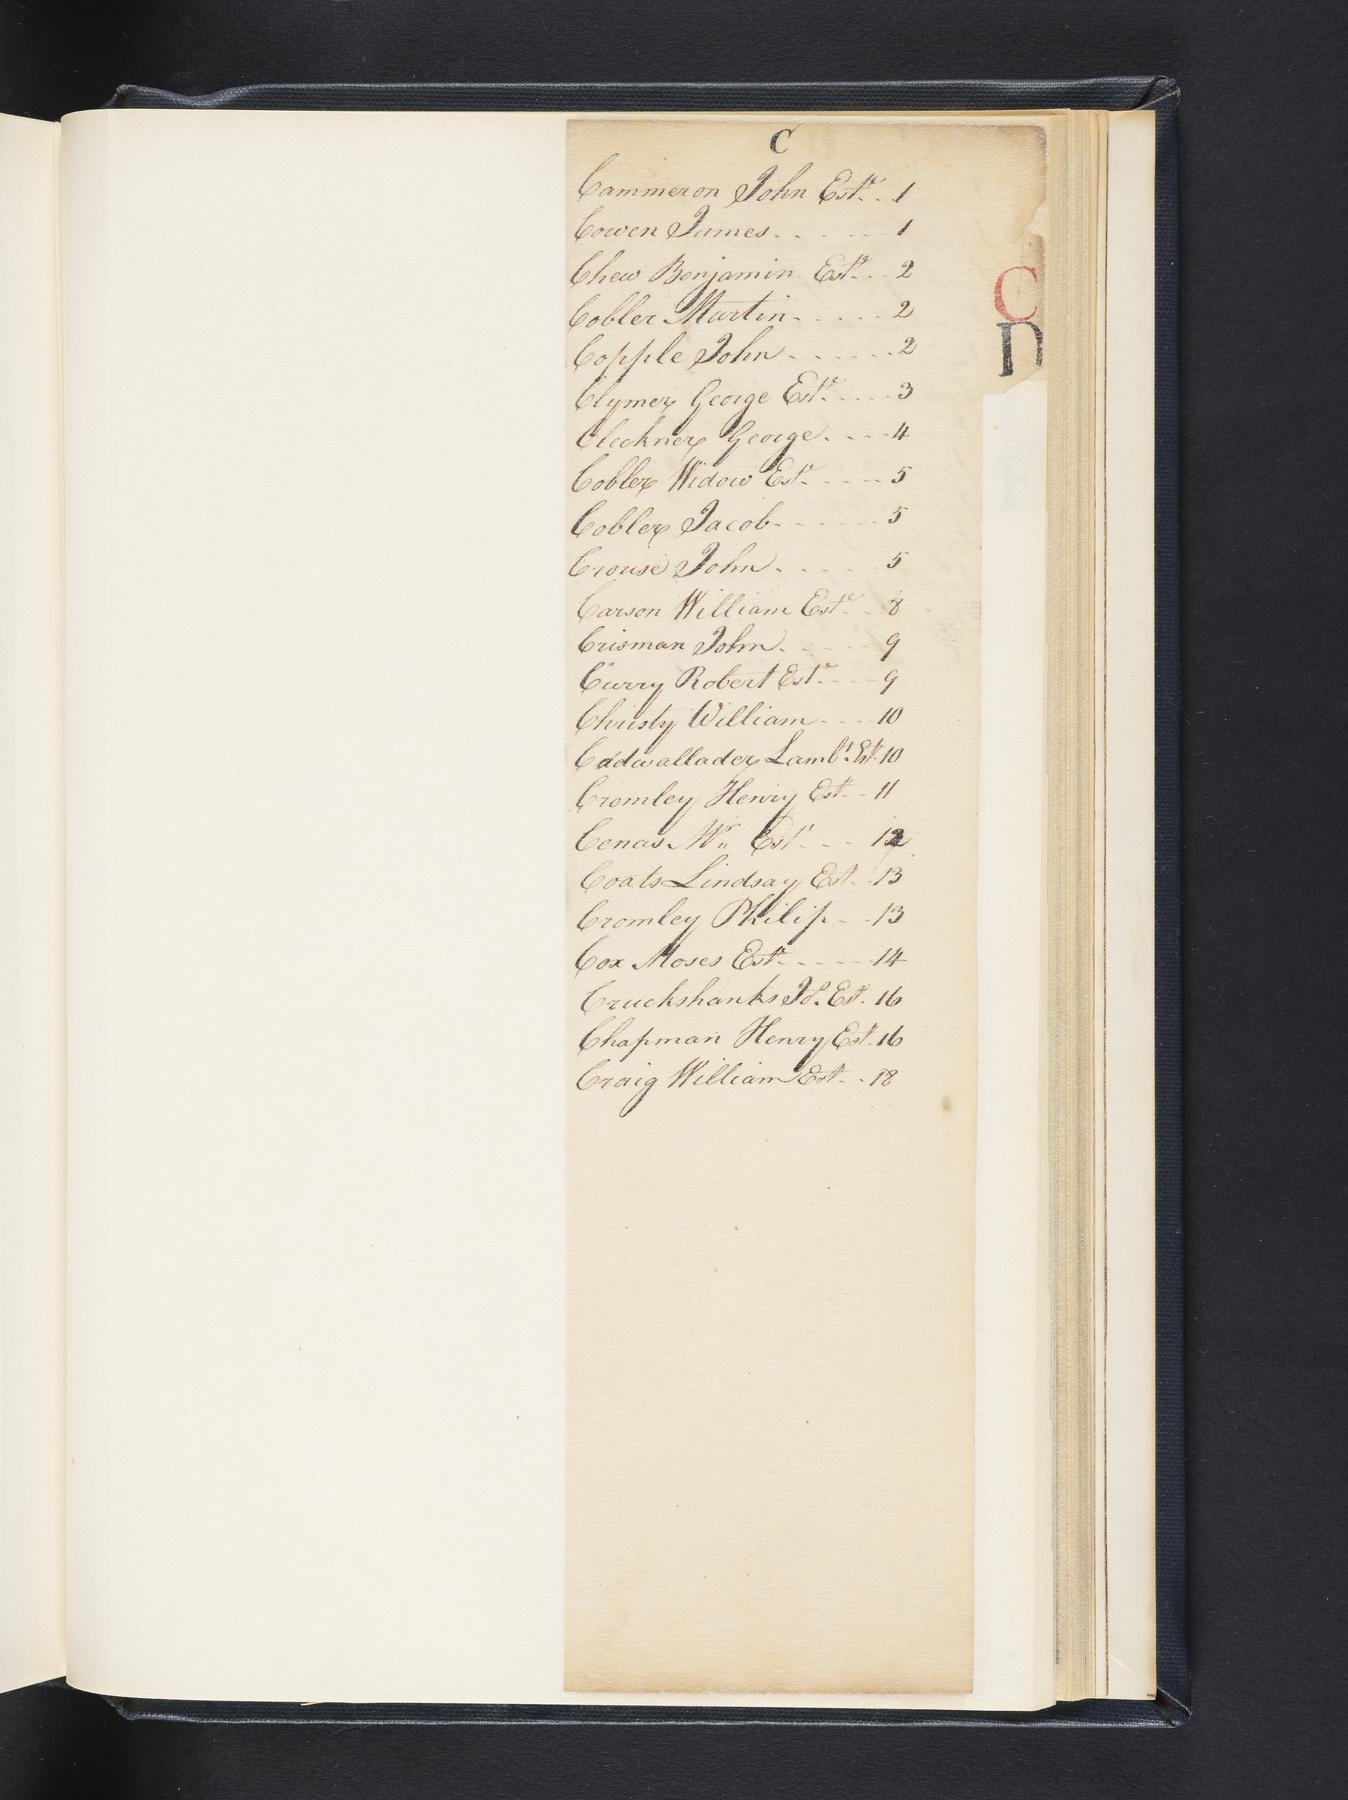 C
Cammeron John Este. . 1
Cowen James. . . . . . 1
Chew Benjamin Este. . . 2
Cobler Martin. . . . . . 2
Copple John . . . . . . . 2
Clymer George Este. . . . . 3
Cleckner George. . . . 4
Cobler Widow Este. . . . . 5
Cobler Jacob. . . . . . 5
Crouse John . . . . . 5
Carson William Este. . . 8
Crisman John . . . . . 9
Curry Robert Este. . . . 9
Christy William . . . . 10
Cadwallader Lambt. Est. 10
Cromley Henry Est. . . 11
Cenas Mr. Est. . . . 12
Coats Lindsay Est. . 13
Cromley Philip . . . 13
Cox Moses Este. . . . . 14
Cruckshanks Js. Est. 16
Chapman Henry Est. 16
Craig William Est. . . 18
C
D